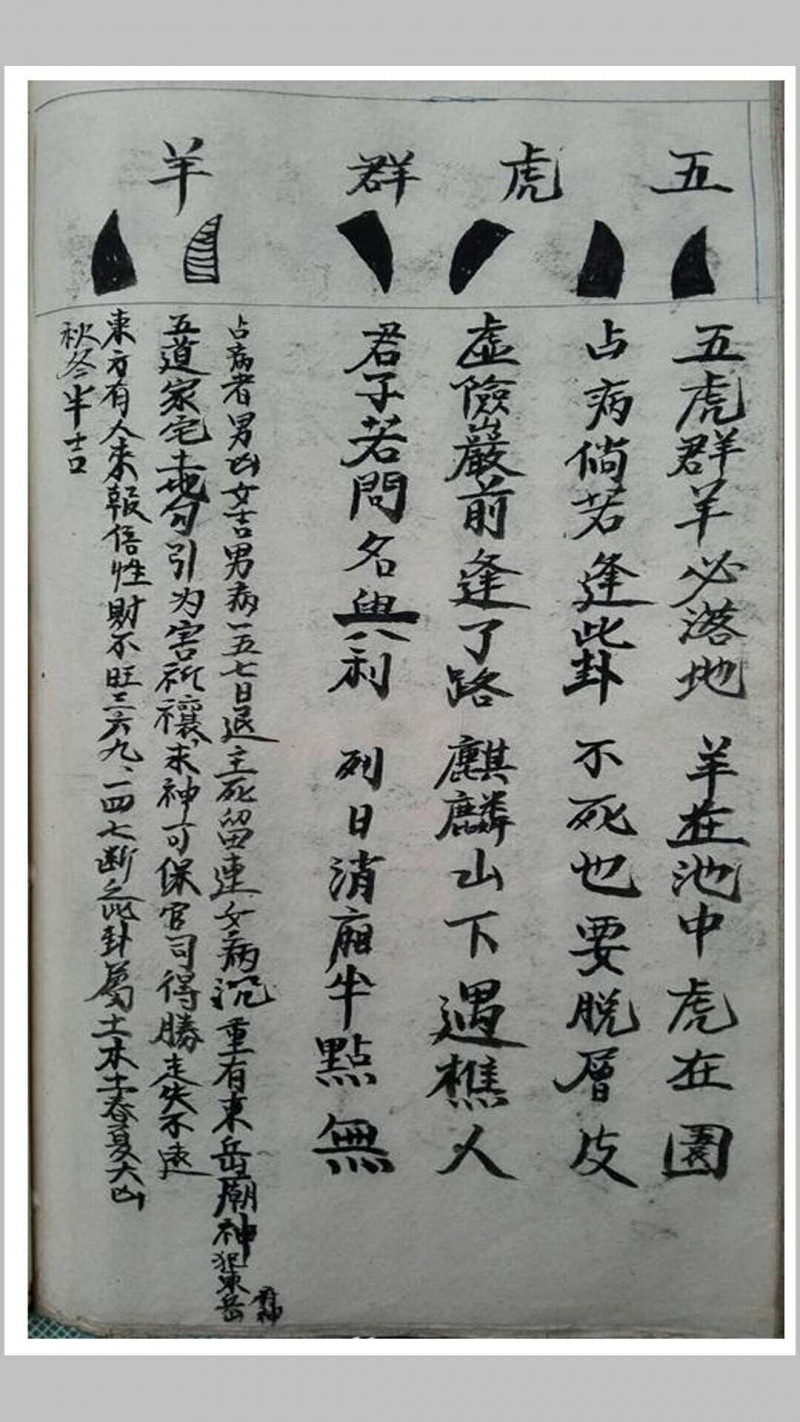 五虎群羊
五虎群羊必落地 羊在池中虎在園
占病倘若逢此卦 不死也要脱層皮
虚險巖前逢了路 麒麟山下遇樵人
君子若問名與利 列日消廂半點無
占病者男凶女吉男病一五七日退主死留連女病沉重有東岳廟神犯東岳
五道家宅土地勾引为害祈禳求神可保官司得勝走失不遠
東方有人来報信性財不旺三六九、一四七断之此卦屬土木土春夏大凶
秋冬半吉